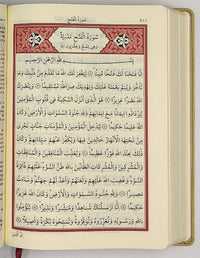 سُورَةُ الْفَتْحِ
سُورَةُ الْفَتْحِ مَدَنِيَّةٌ
وَهِيَ تِسْعٌ وَعِشْرُونَ اٰيَةً
بِسْمِ اللّٰهِ الرَّحْمٰنِ الرَّحِيمِ
اِنَّا فَتَحْنَا لَكَ فَتْحًا مُبِينًا لِيَغْفِرَ لَكَ اللّٰهُ مَا تَقَدَّمَ مِنْ ذَنْبِكَ وَمَا
تَاَخَّرَ وَيُتِمَّ نِعْمَتَهُ عَلَيْكَ وَيَهْدِيَكَ صِرَاطًا مُسْتَقِيمًا وَيَنْصُرَكَ
اللّٰهُ نَصْرًا عَزِيزًا هُوَ الَّذِي اَنْزَلَ السَّكِينَةَ فِي قُلُوبِ الْمُؤْمِنِينَ
لِيَزْدَادُوا اِيمَانًا مَعَ اِيمَانِهِمْ وَلِلّٰهِ جُنُودُ السَّمٰوَاتِ وَالْاَرْضِ وَكَانَ اللّٰهُ عَلِيمًا
حَكِيمًا لِيُدْخِلَ الْمُؤْمِنِينَ وَالْمُؤْمِنَاتِ جَنَّاتٍ تَجْرِي مِنْ
تَحْتِهَا الْاَنْهَارُ خَالِدِينَ فِيهَا وَيُكَفِّرَ عَنْهُمْ سَيِّـَٔاتِهِمْ وَكَانَ ذٰلِكَ
عِنْدَ اللّٰهِ فَوْزًا عَظِيمًا وَيُعَذِّبَ الْمُنَافِقِينَ وَالْمُنَافِقَاتِ
وَالْمُشْرِكِينَ وَالْمُشْرِكَاتِ الظَّانِّينَ بِاللّٰهِ ظَنَّ السَّوْءِ عَلَيْهِمْ دَائِرَةُ
السَّوْءِ وَغَضِبَ اللّٰهُ عَلَيْهِمْ وَلَعَنَهُمْ وَاَعَدَّ لَهُمْ جَهَنَّمَ وَسَاءَتْ
مَصِيرًا وَلِلّٰهِ جُنُودُ السَّمٰوَاتِ وَالْاَرْضِ وَكَانَ اللّٰهُ عَزِيزًا
حَكِيمًا اِنَّا اَرْسَلْنَاكَ شَاهِدًا وَمُبَشِّرًا وَنَذِيرًا لِتُؤْمِنُوا
بِاللّٰهِ وَرَسُولِهِ وَتُعَزِّرُوهُ وَتُوَقِّرُوهُ وَتُسَبِّحُوهُ بُكْرَةً وَاَصِيلًا